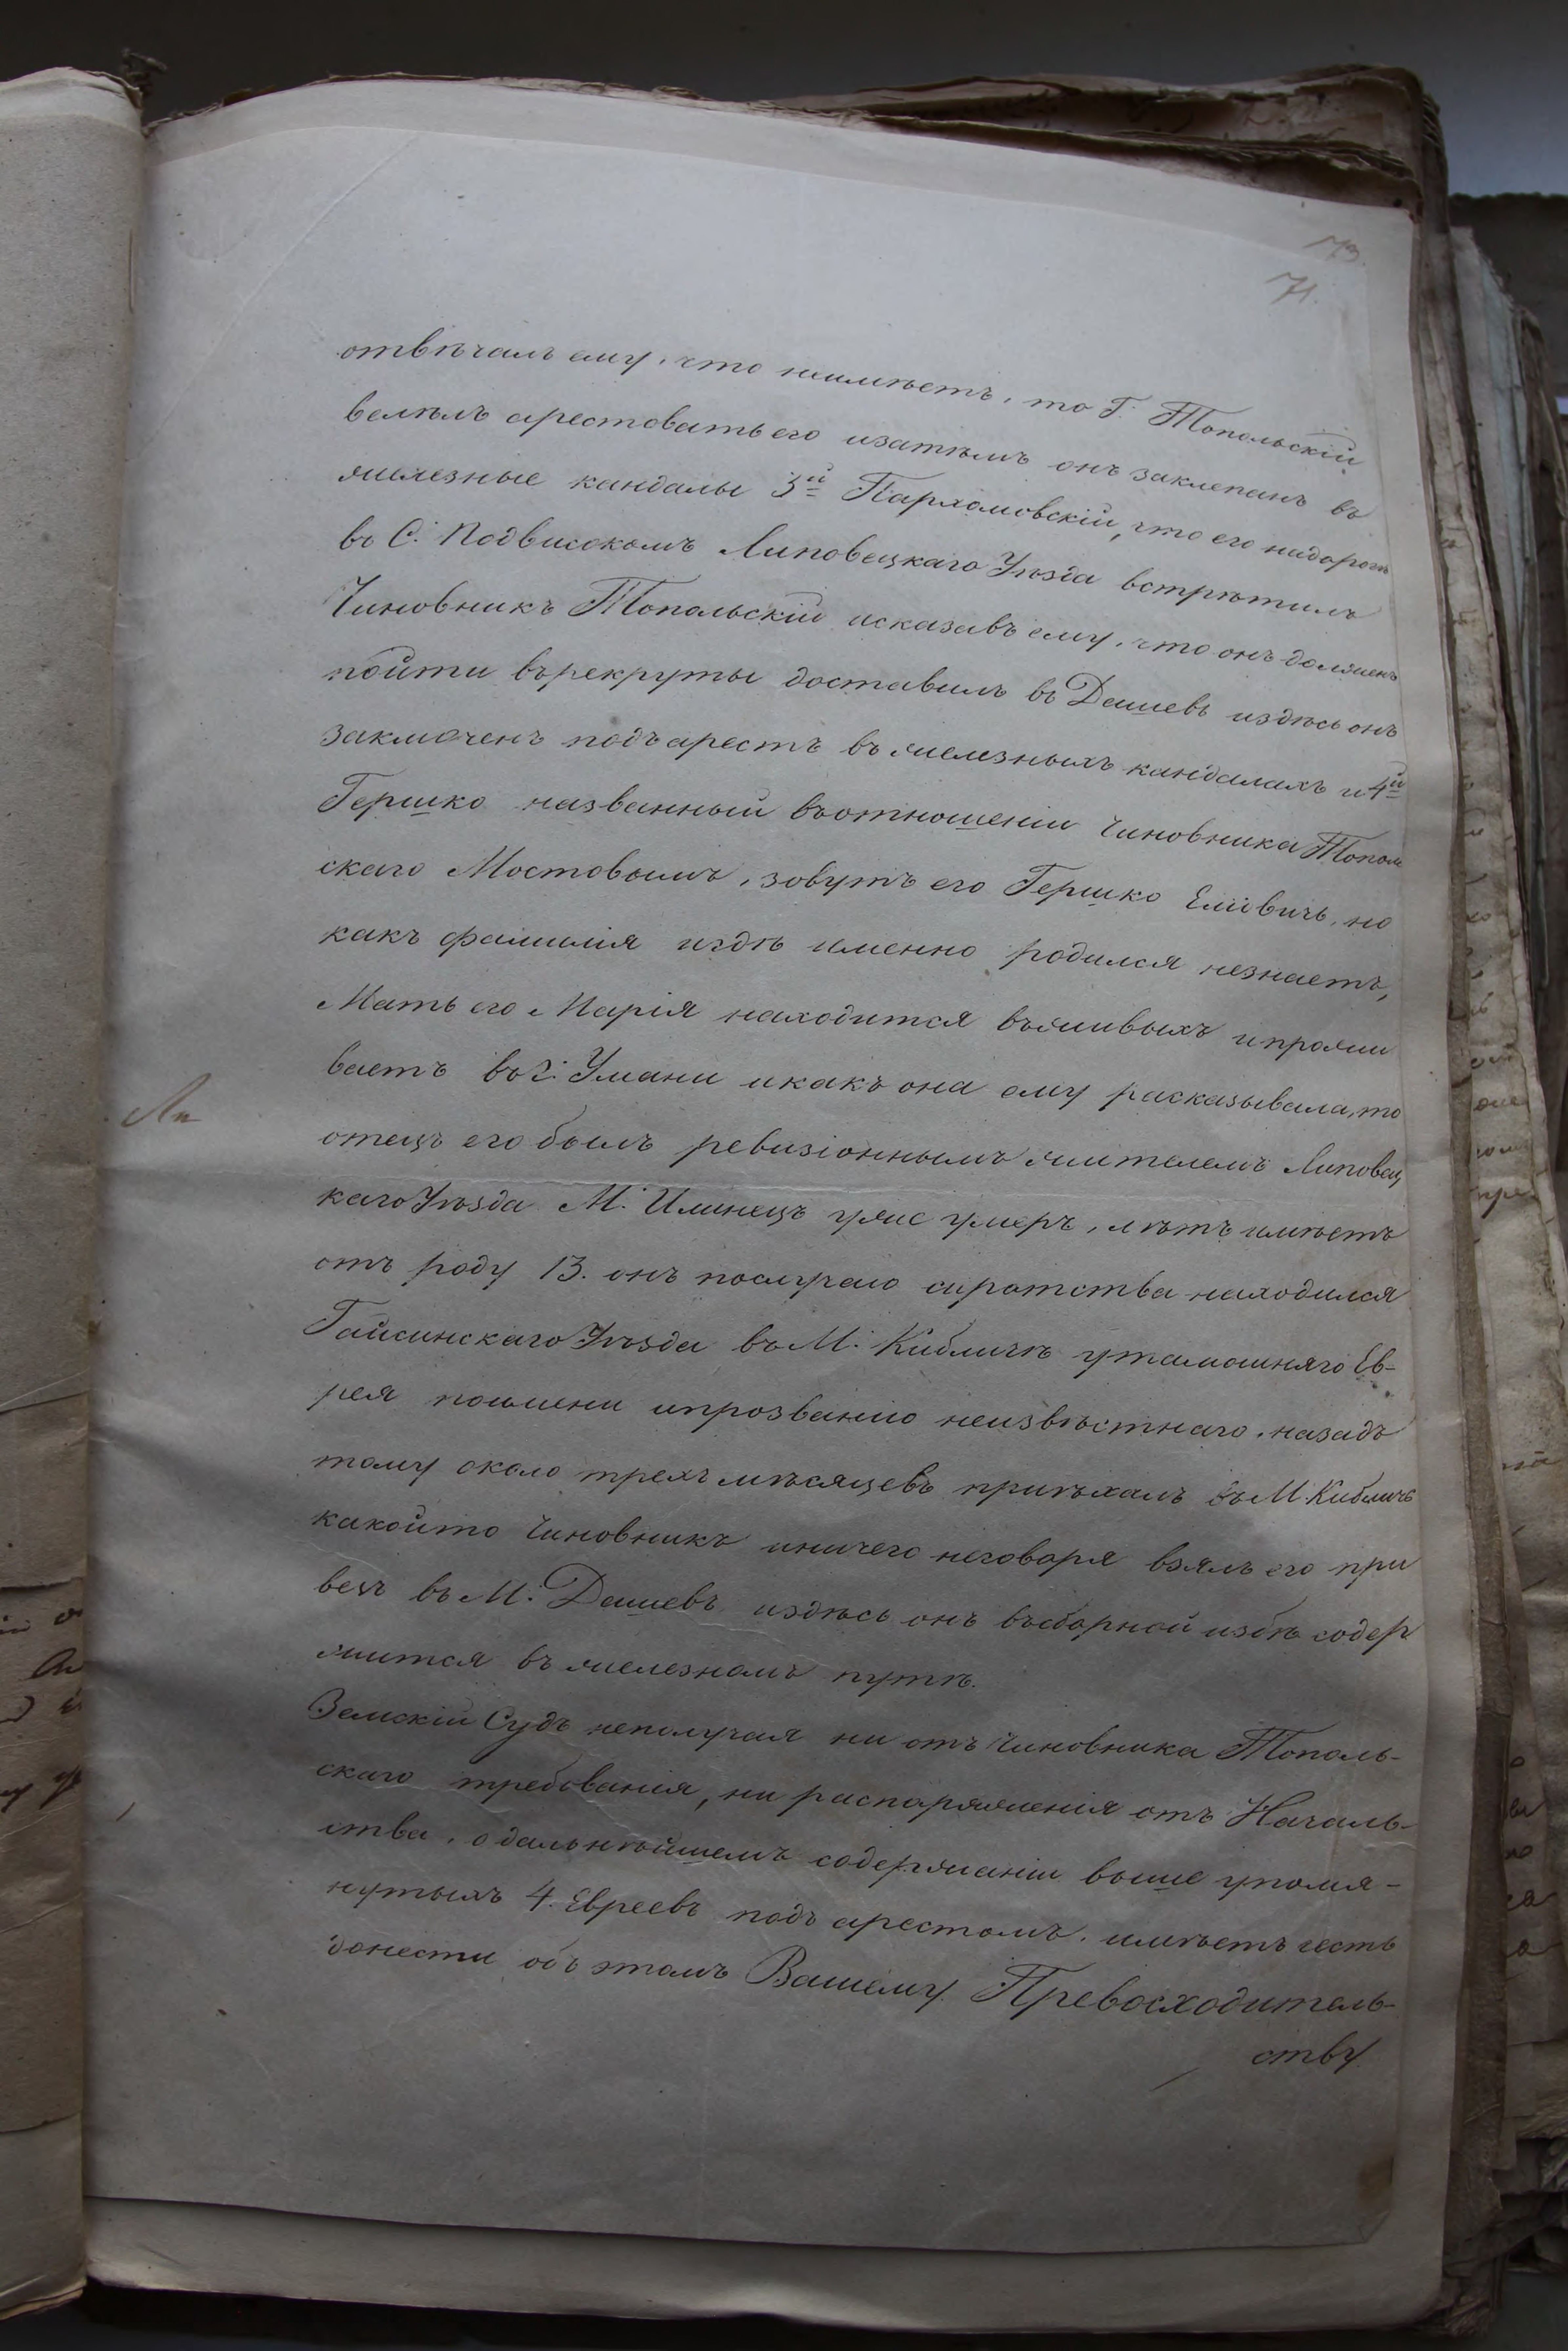 73.
71.
отвѣчалъ ему, что неимѣетъ, то Г. Топольскій
велѣлъ арестовать его изатѣмъ онъ заклепанъ въ
железные кандалы 3й Пархомовскій, что его надорогѣ
въ С. Подвысокомъ Липовецкаго Уѣзда встрѣтилъ
Чиновникъ Топольскій исказавъ ему, что онъ долженъ
пойти върекруты доставилъ въ Дашевъ издѣсь онъ
заключенъ подъ арестъ въ железныхъ кандалахъ и 4й
Гершко названный въотношеніи Чиновника Тополь
скаго Мостовымъ, зовутъ его Гершко Еліовичь, но
какъ фамилія игдѣ именно родился незнаетъ,
Мать его Марія находится въживыхъ ипрожи
ваетъ въ г. Умани икакъ она ему расказывала, то
отецъ его былъ ревизіоннымъ жителемъ Липовец
каго Уѣзда М. Илинецъ уже умеръ, лѣтъ имѣетъ
отъ роду 13. онъ послучаю сиротства находился
Гайсинскаго Уѣзда въ М. Кибличѣ утамошняго Ев-
рея поимени ипрозванію неизвѣстнаго, назадъ
тому около трехъ мѣсяцевъ приѣхалъ въ М. Кибличь
какойто Чиновникъ иничего неговоря взялъ его при
везъ въ М. Дашевъ издѣсь онъ въсборной избѣ содер
жится въ железномъ путѣ.
Земскій Судъ неполучая ни отъ Чиновника Тополь-
скаго требованія, ни распоряженія отъ Началь-
ства, одальнѣйшемъ содержаніи выше упомя-
нутыхъ 4. Евреевъ подъ арестомъ, имѣетъ честь
донести объ этомъ Вашему Превосходитель-
ству